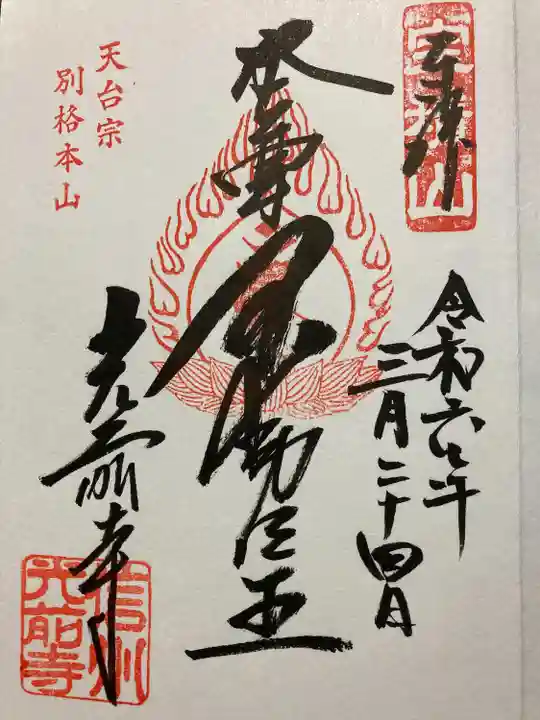 宝積山
奉拝
令和六年
三月二十四日
本尊不動明王
天台宗
別格本山
光前寺
信州
光前寺